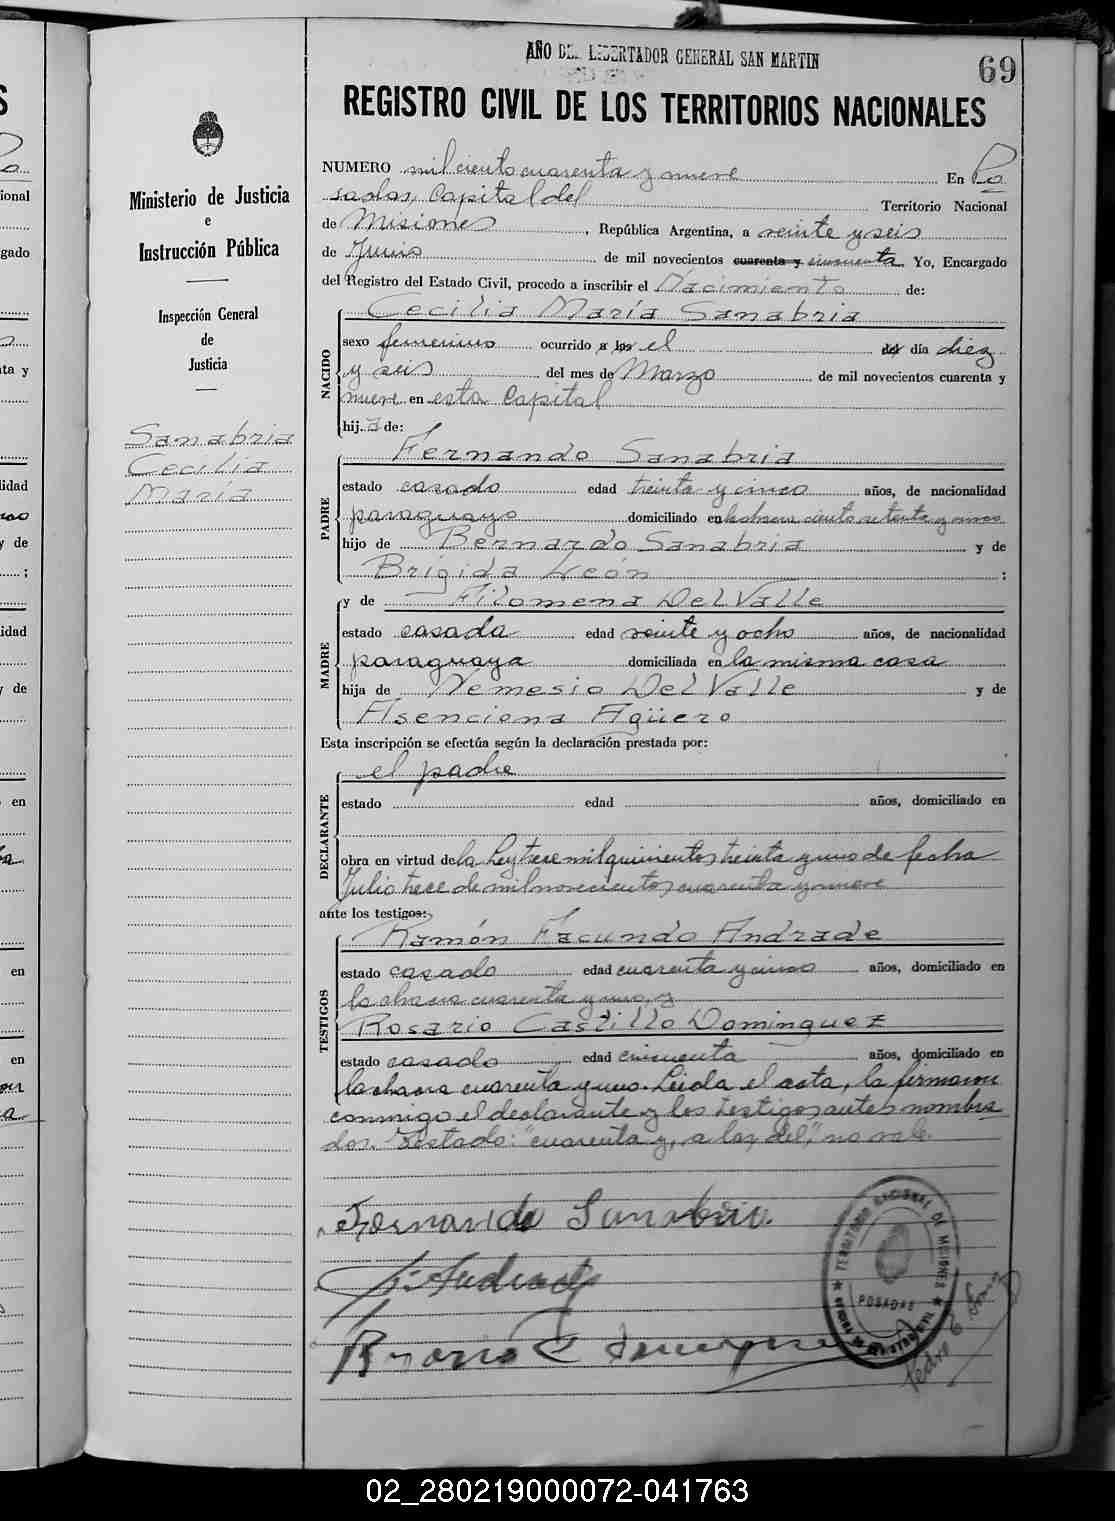 AÑO DEL LIBERTADOR GENERAL SAN MARTIN
69
REGISTRO CIVIL DE LOS TERRITORIOS NACIONALES
Ministerio de Justicia
e
Instrucción Pública
Inspección General
de
Justicia
Sanabria
Cecilia
María
NUMERO mil ciento cuarenta y nueve En Po
sadas, Capital del Territorio Nacional
de Misiones, República Argentina, a veinte y seis
de Junio de mil novecientos cuarenta y cincuenta. Yo, Encargado
del Registro del Estado Civil, procedo a inscribir el Nacimiento de:
NACIDO
Cecilia María Sanabria
sexo femenino ocurrido a las el del día diez
y seis del mes de Marzo de mil novecientos cuarenta y
nueve en esta Capital
hija de:
PADRE
Fernando Sanabria
estado casado edad treinta y cinco años, de nacionalidad
paraguayo domiciliado en la chacra ciento setenta y uno
hijo de Bernardo Sanabria y de
Brígida León ;
MADRE
y de Filomena Del Valle
estado casada edad veinte y ocho años, de nacionalidad
paraguaya domiciliada en la misma casa
hija de Nemesio Del Valle y de
Asenciona Agüero
Esta inscripción se efectúa según la declaración prestada por:
DECLARANTE
el padre
estado edad años, domiciliado en
obra en virtud de la Ley trece mil quinientos treinta y uno de fecha
Julio trece de mil novecientos cuarenta y nueve
ante los testigos:
TESTIGOS
Ramón Facundo Andrade
estado casado edad cuarenta y cinco años, domiciliado en
la chacra cuarenta y uno, y
Rosario Castillo Dominguez
estado casado edad cincuenta años, domiciliado en
la chacra cuarenta y uno. Leida el acta, la firmaron
conmigo el declarante y los testigos antes nombra
dos. Testado: "cuarenta y, a las, del", no vale.
Fernando Sanabria.
Andrade
Rosario C Dominguez
TERRITORIO NACIONAL DE MISIONES
POSADAS
Pedro
02_280219000072-041763